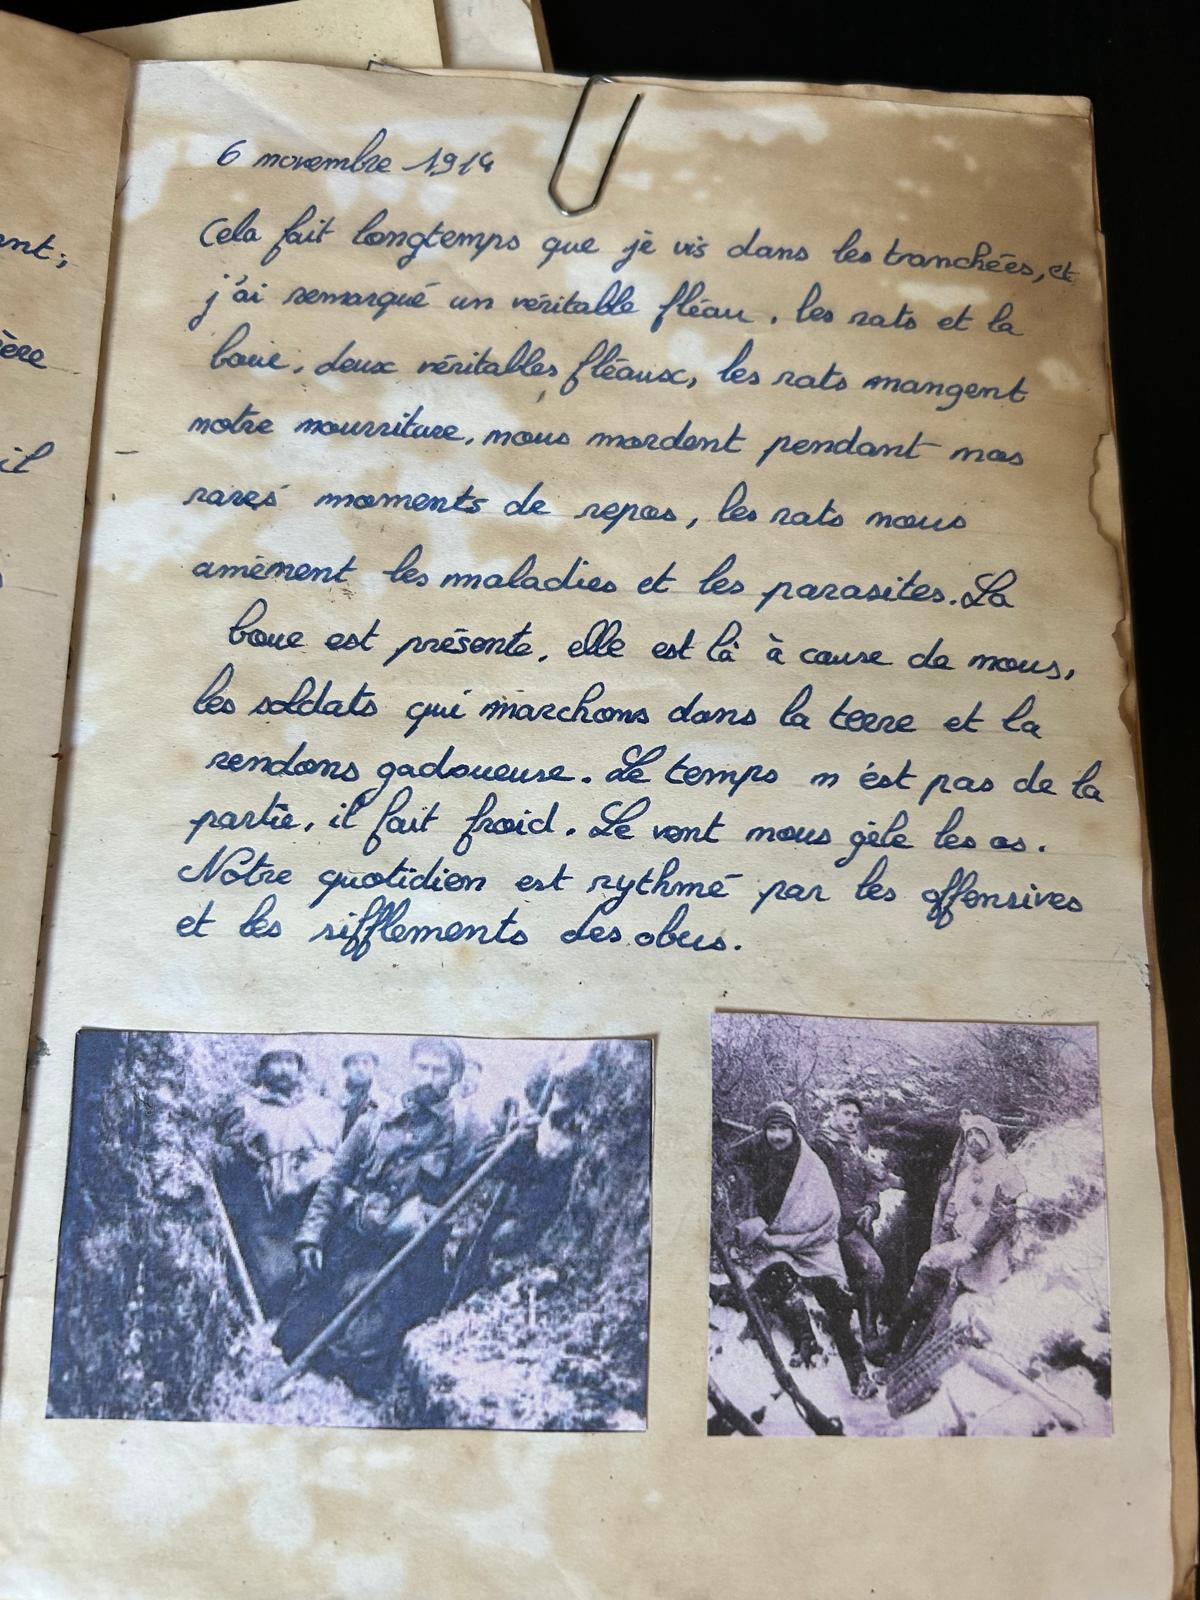 6 novembre 1914
Cela fait longtemps que je vis dans les tranchées, et
j'ai remarqué un véritable fléau, les rats et la
boue, deux véritables fléaux, les rats mangent
notre nourriture, nous mordent pendant nos
rares moments de repos, les rats nous
amèment les maladies et les parasites. La
boue est présente, elle est là à cause de nous,
les soldats qui marchons dans la terre et la
rendons gadoueuse. Le temps n'est pas de la
partie, il fait froid. Le vent nous gèle les os.
Notre quotidien est rythmé par les offensives
et les sifflements des obus.
ant;
ère
il